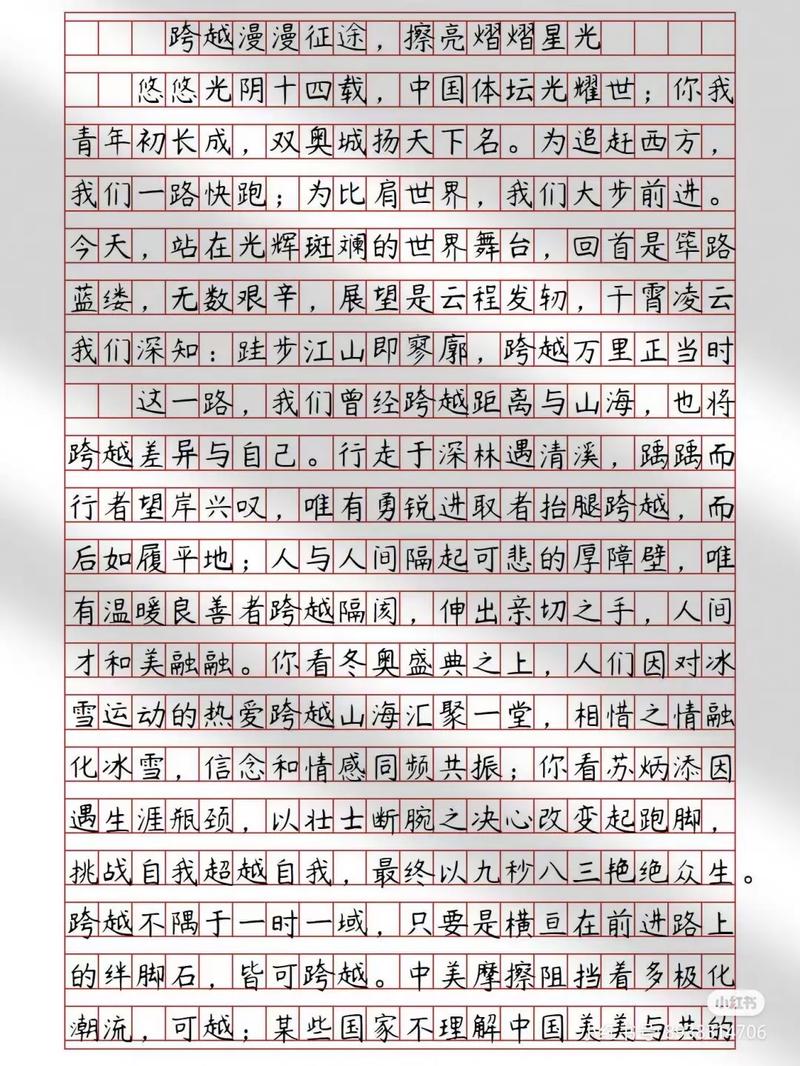 跨越漫漫征途，擦亮熠熠星光
悠悠光阴十四载，中国体坛光耀世；你我
青年初长成，双奥城扬天下名。为追赶西方，
我们一路快跑；为比肩世界，我们大步前进。
今天，站在光辉斑斓的世界舞台，回首是筚路
蓝缕，无数艰辛，展望是云程发轫，干霄凌云
我们深知：跬步江山即寥廓，跨越万里正当时
这一路，我们曾经跨越距离与山海，也将
跨越差异与自己。行走于深林遇清溪，踽踽而
行者望岸兴叹，唯有勇锐进取者抬腿跨越，而
后如履平地；人与人间隔起可悲的厚障壁，唯
有温暖良善者跨越隔阂，伸出亲切之手，人间
才和美融融。你看冬奥盛典之上，人们因对冰
雪运动的热爱跨越山海汇聚一堂，相惜之情融
化冰雪，信念和情感同频共振；你看苏炳添因
遇生涯瓶颈，以壮士断腕之决心改变起跑脚，
挑战自我超越自我，最终以九秒八三艳绝众生。
跨越不隅于一时一域，只要是横亘在前进路上
的绊脚石，皆可跨越。中美摩擦阻挡着多极化
潮流，可越；某些国家不理解中国美美与共的
小红书